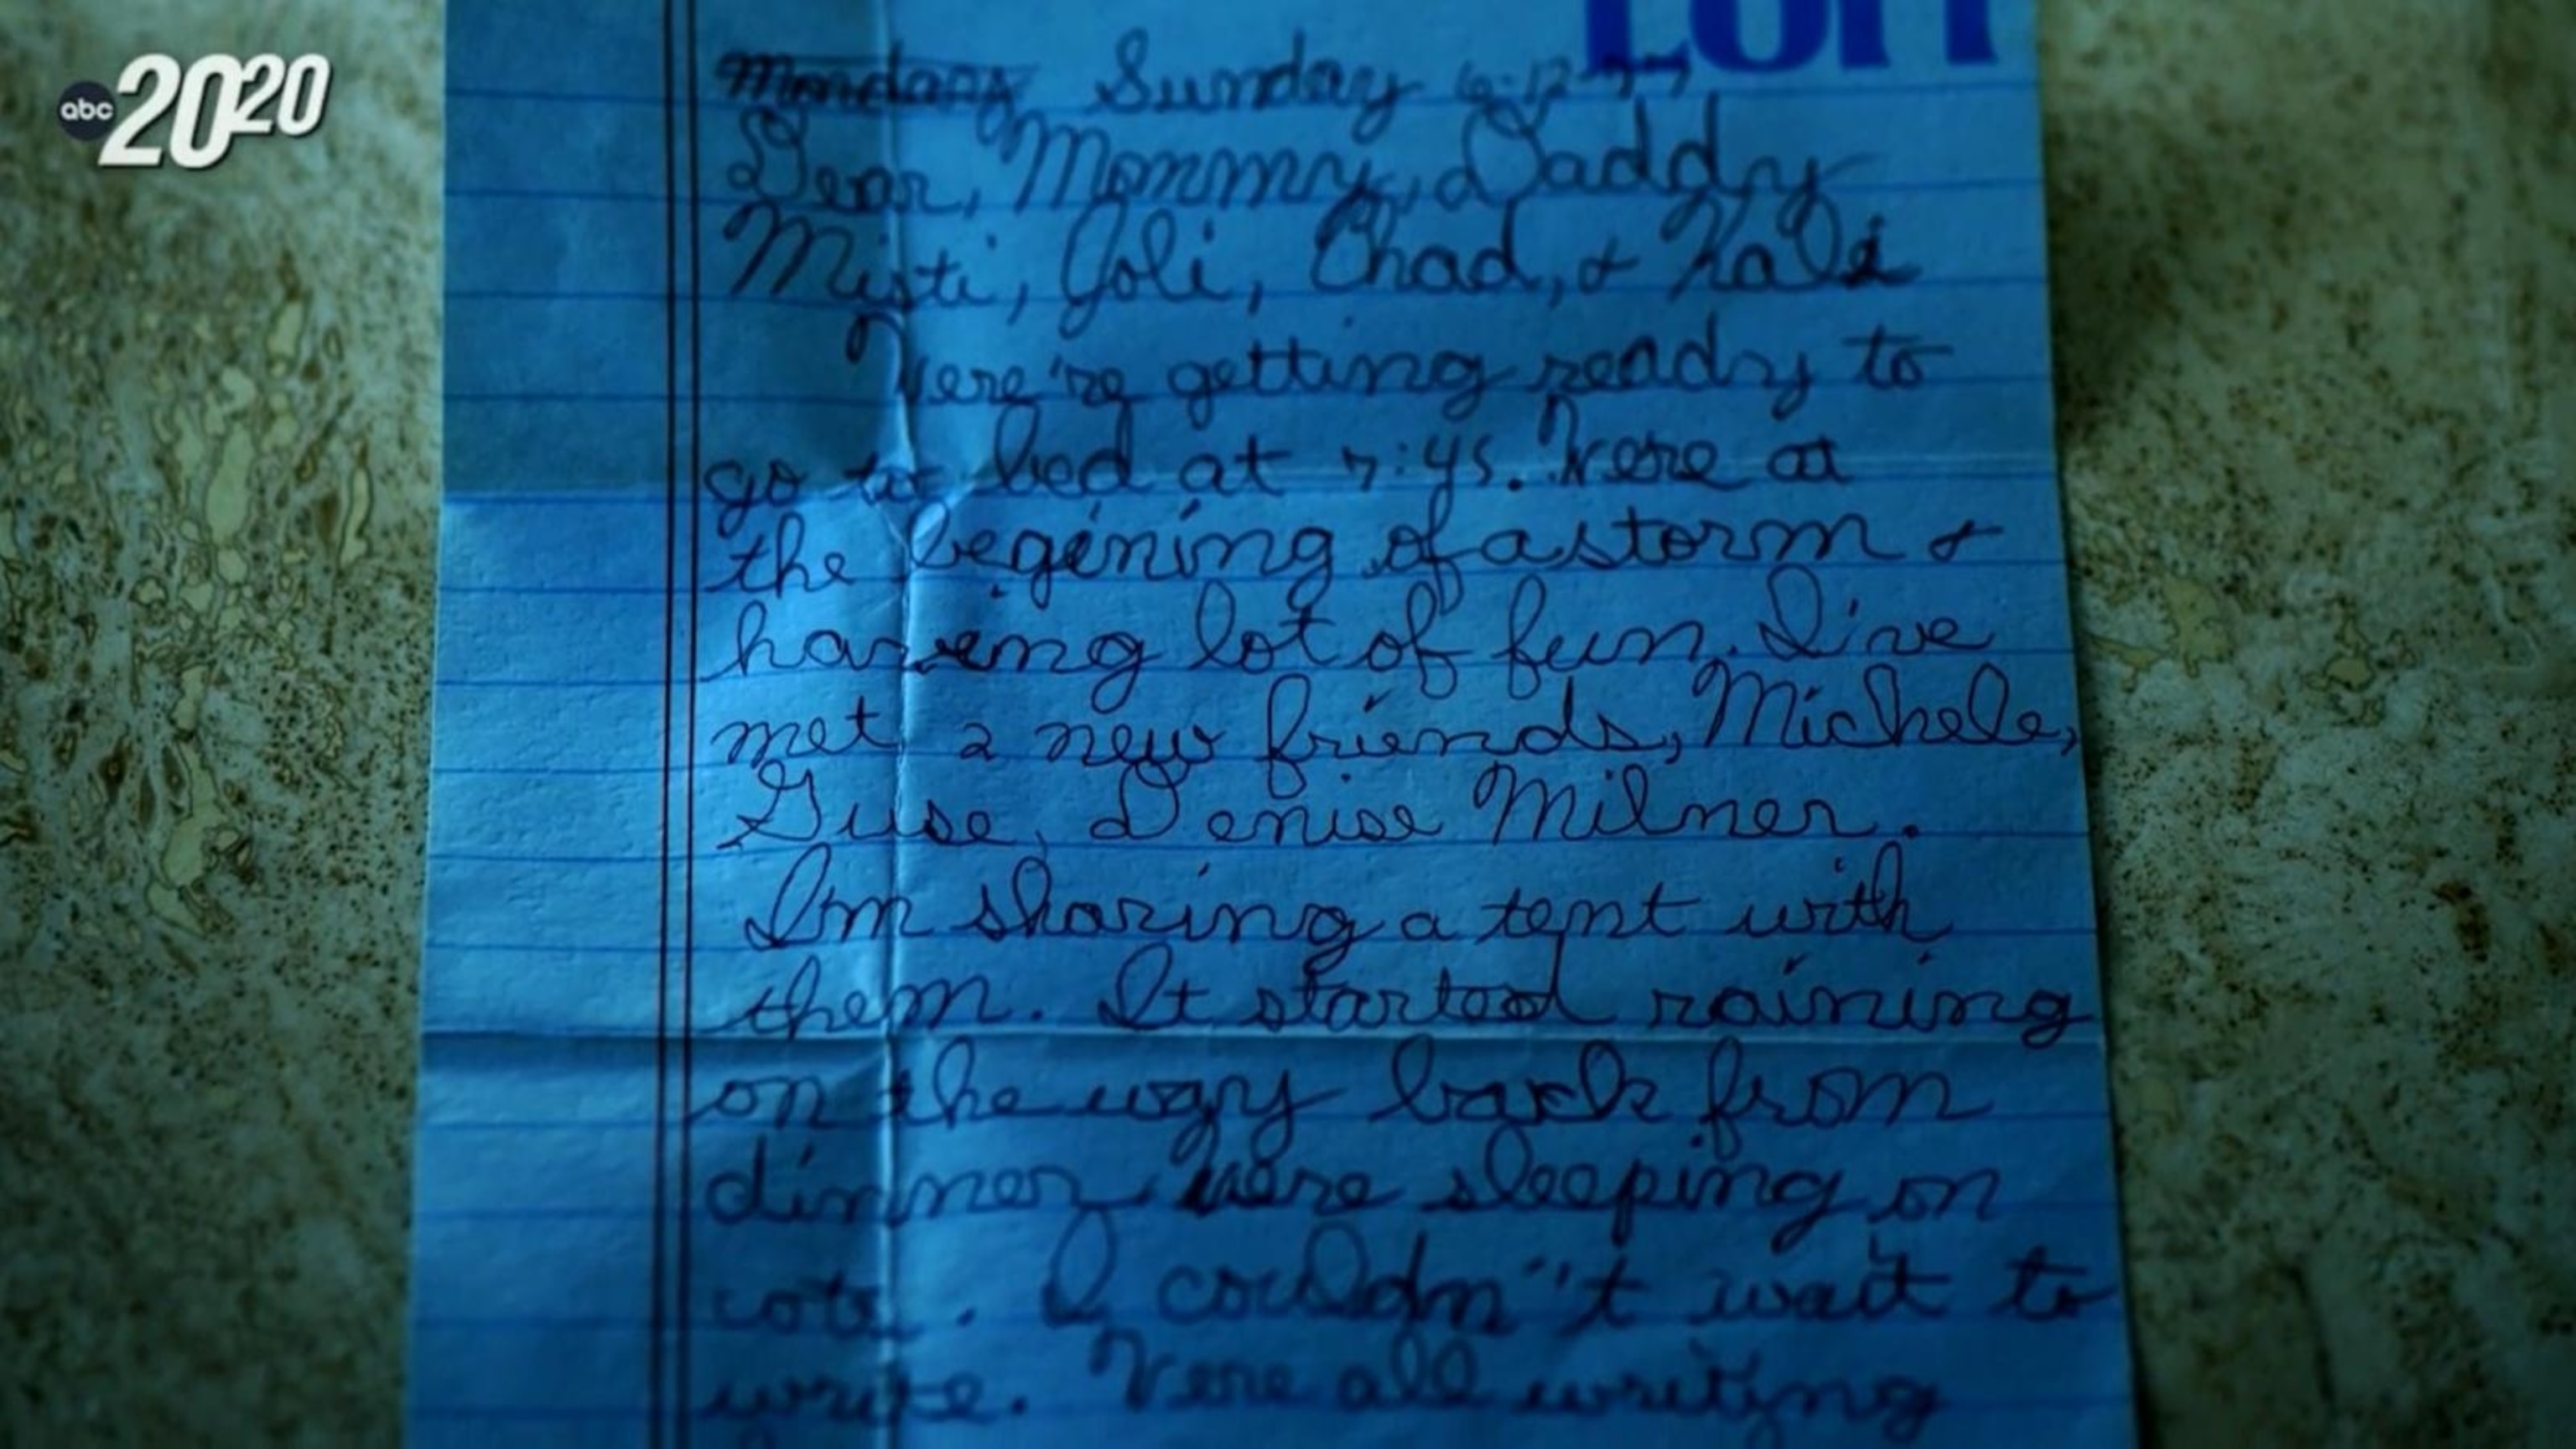 abc 2020
LORI
Monday Sunday 6-12-77
Dear, Mommy, Daddy
Misti, Joli, Chad, & Kali
Were're getting ready to
go to bed at 7:45. Were at
the begining of a storm &
having lot of fun. I've
met 2 new friends, Michele,
Guse, Denise Milner.
I'm sharing a tent with
them. It started raining
on the way back from
dinner. Were sleeping on
cots. I couldn''t wait to
write. Were all writing